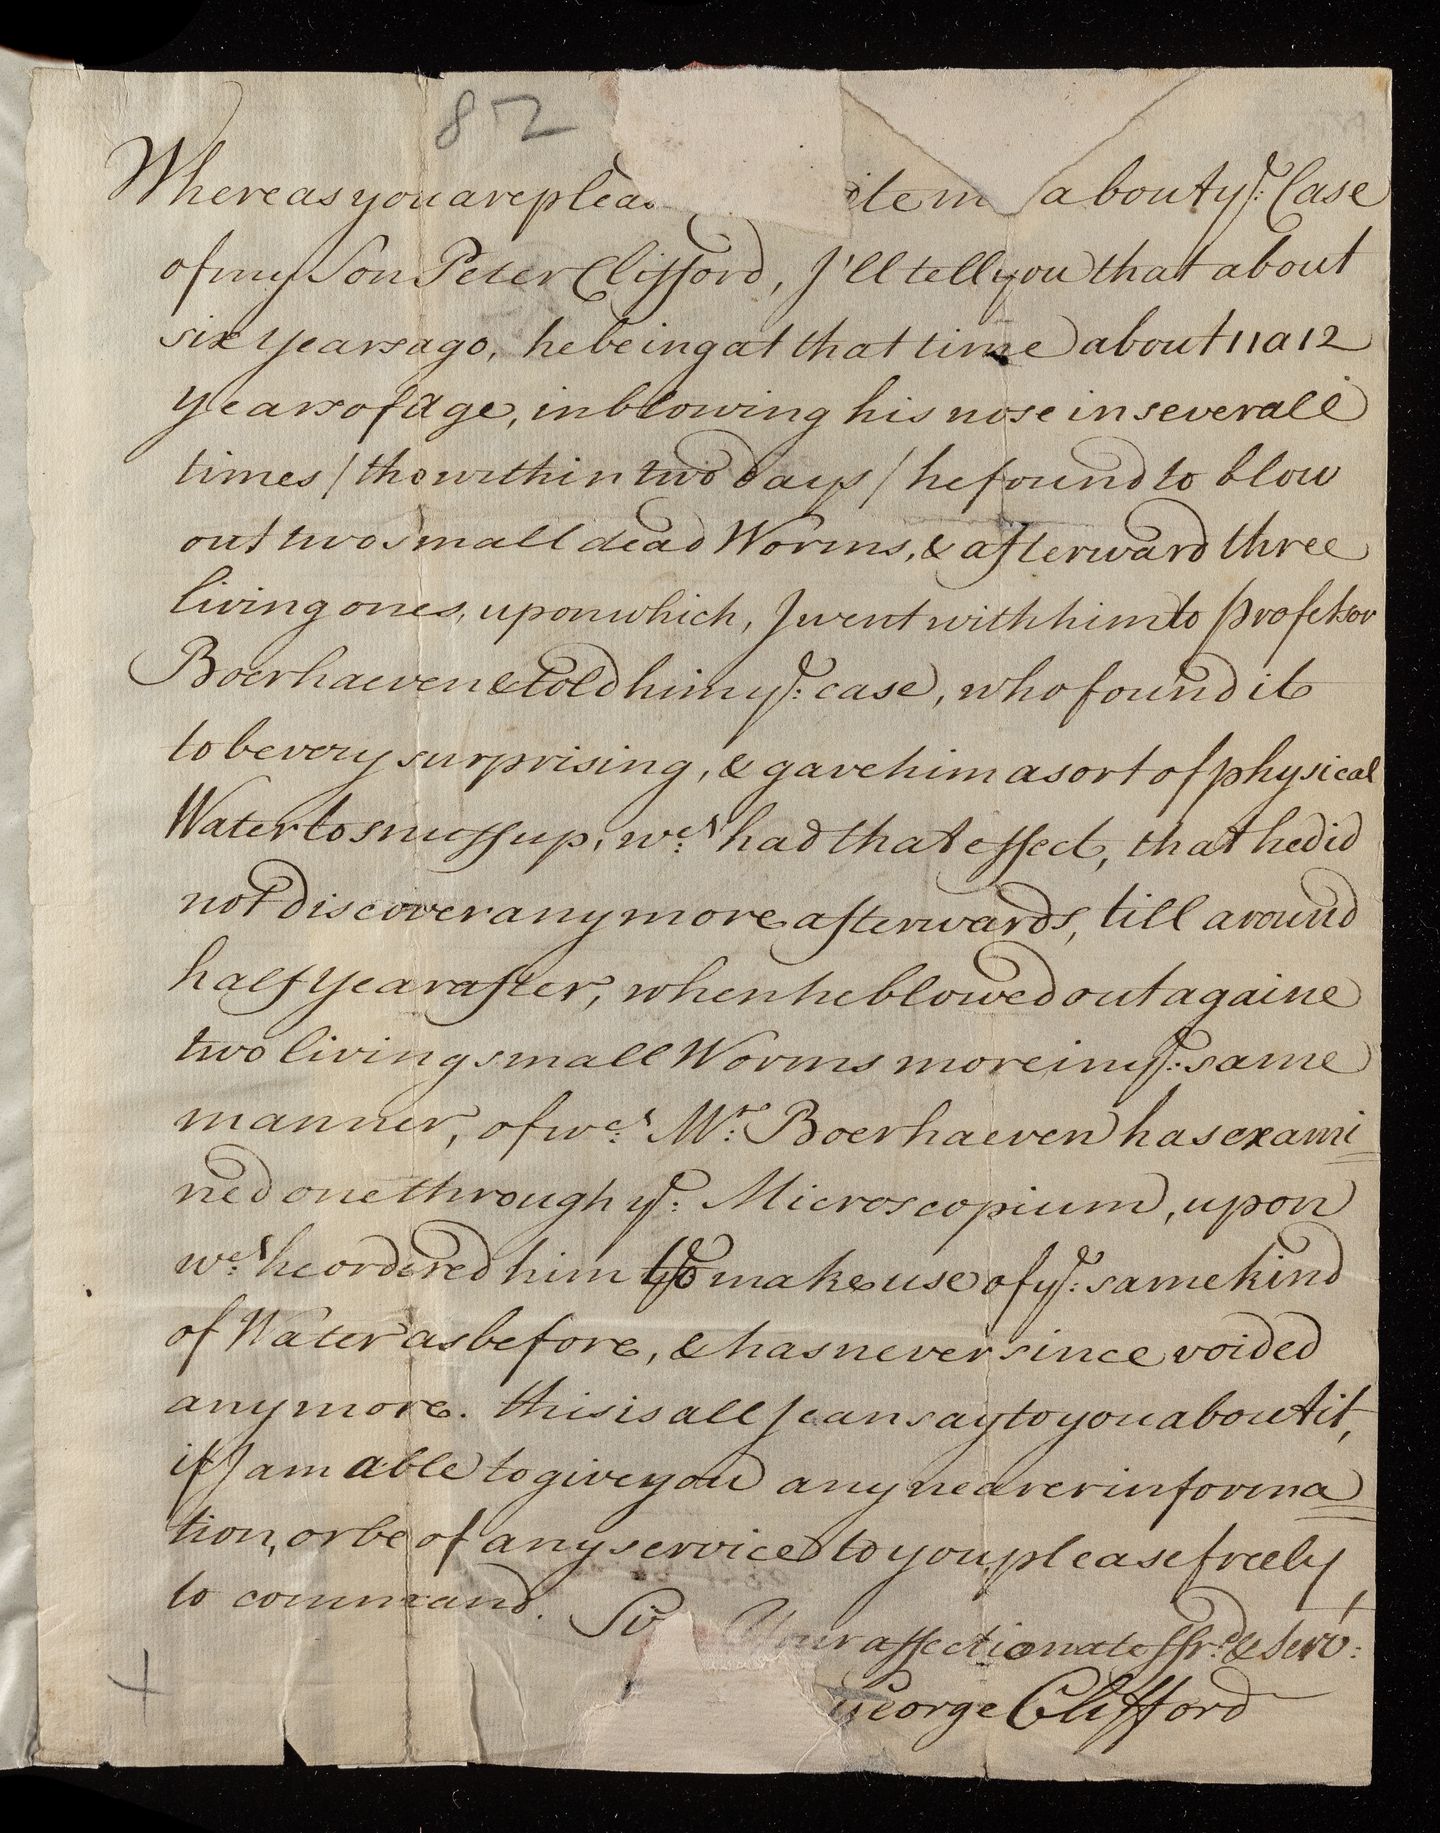 82
Whereas you are pleas ite me about ye: Case
of my Son Peter Clifford, I'll tell you that about
six years ago, he being at that time about 11 a 12
years of age, in blowing his nose in severall
times / tho within two days / he found to blow
out two small dead Worms, & afterward three
living ones, upon which, I went with him to professor
Boerhaeven & told him ye: case, who found it
to be very surprising, & gave him a sort of physical
Water to snuff up, wch: had that effect, that he did
not discover any more afterwards, till around
half year after, when he blowed out againe
two living small Worms more in ye: same
manner, of wch: Mr: Boerhaeven has exami
ned one through ye: Microscopium, upon
wch: he ordered him to make use of ye: same kind
of Water as before, & has never since voided
any more. this is all I can say to you about it,
if I am able to give you any nearer informa
tion, or be of any service to you, please freely
to command. Sir Your affectionate ffrd: & serv:t
George Clifford